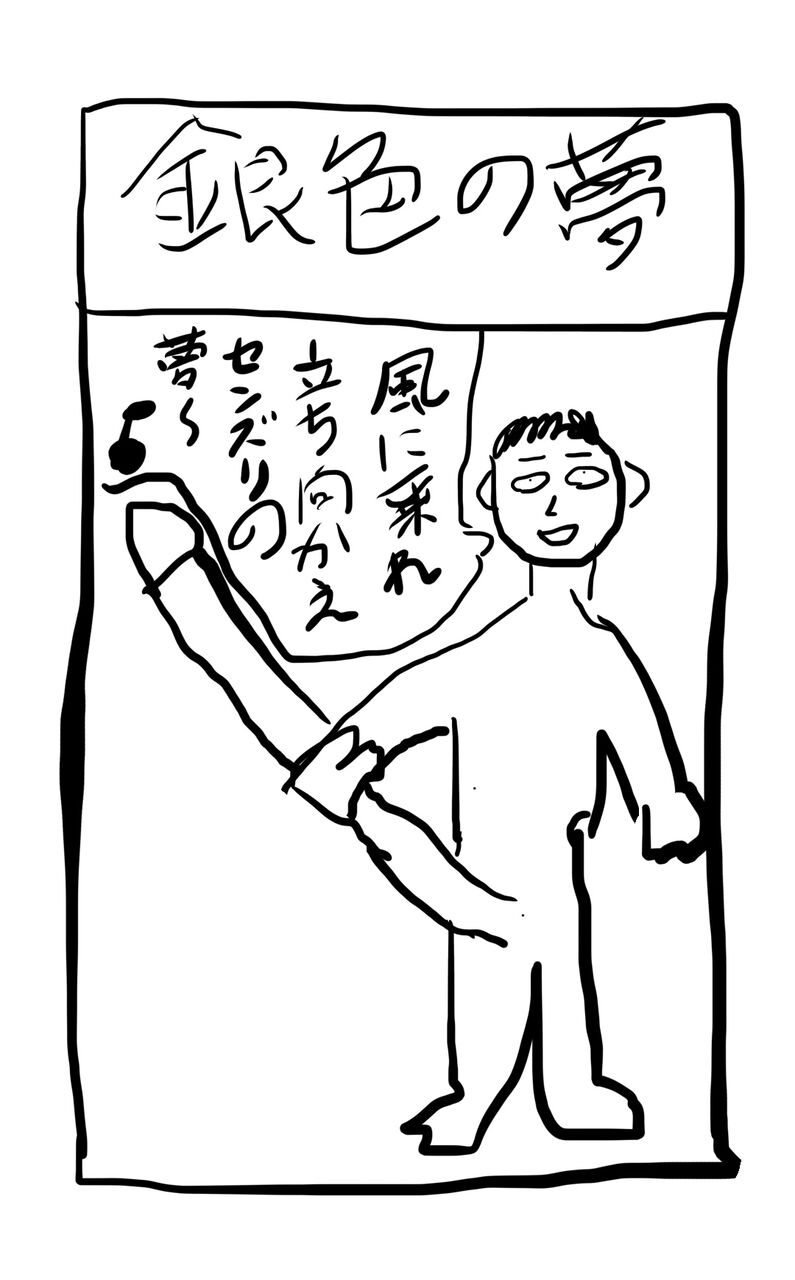 銀色の夢
風に乗れ
立ち向かえ
センズリの
夢〜